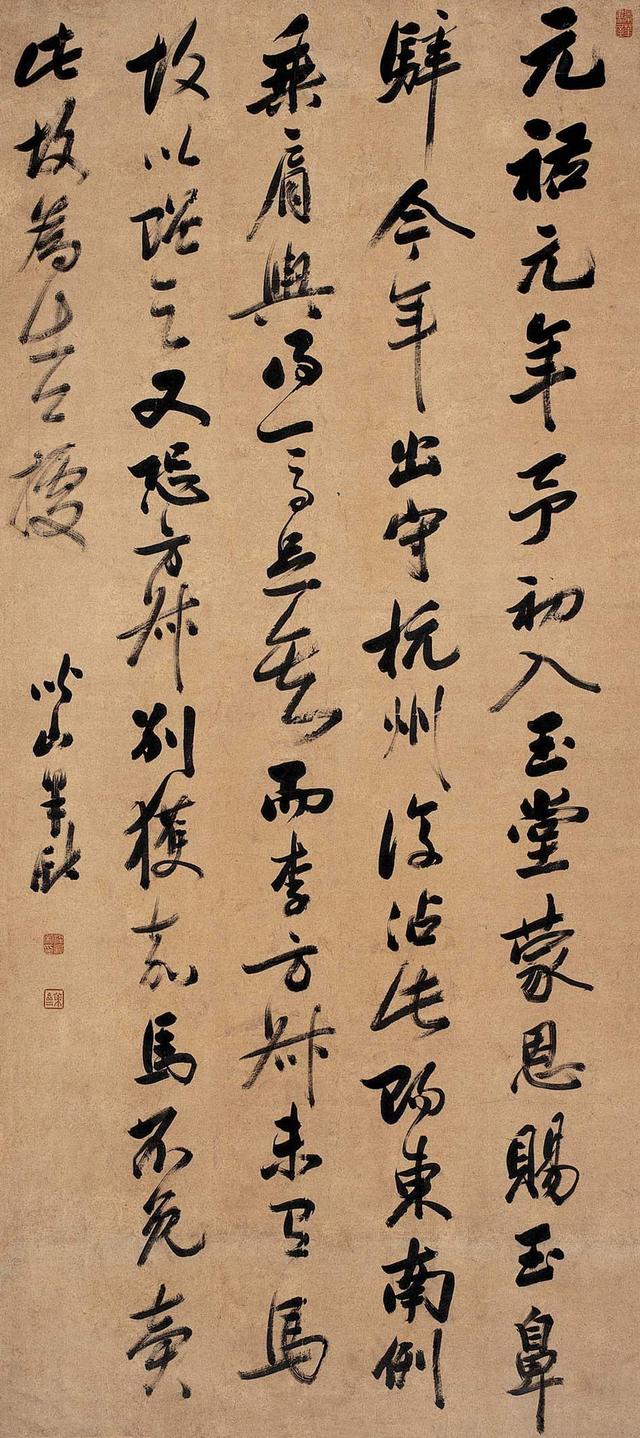 元祐元年予初入玉堂蒙恩賜玉鼻
騂今年出守杭州復沾此賜東南例
乘肩輿得一馬足矣而李方叔未有馬
故以贈之又恐方叔別獲嘉馬不免賣
此故為出公據